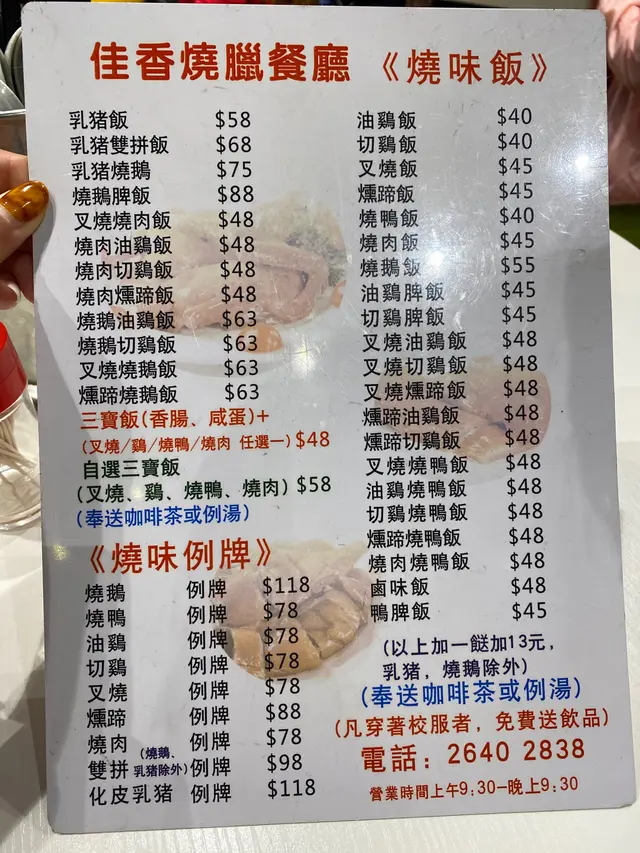 佳香燒臘餐廳 《燒味飯》
乳猪飯 $58
乳猪雙拼飯 $68
乳猪燒鵝 $75
燒鵝脾飯 $88
叉燒燒肉飯 $48
燒肉油鷄飯 $48
燒肉切鷄飯 $48
燒肉燻蹄飯 $48
燒鵝油鷄飯 $63
燒鵝切鷄飯 $63
叉燒燒鵝飯 $63
燻蹄燒鵝飯 $63
三寶飯(香腸、咸蛋)+
(叉燒/鷄/燒鴨/燒肉 任選一) $48
自選三寶飯
(叉燒、鷄、燒鴨、燒肉) $58
(奉送咖啡茶或例湯)
《燒味例牌》
燒鵝 例牌 $118
燒鴨 例牌 $78
油鷄 例牌 $78
切鷄 例牌 $78
叉燒 例牌 $78
燻蹄 例牌 $88
燒肉 例牌 $78
雙拼 (燒鵝、乳猪除外) 例牌 $98
化皮乳猪 例牌 $118
油鷄飯 $40
切鷄飯 $40
叉燒飯 $45
燻蹄飯 $45
燒鴨飯 $40
燒肉飯 $45
燒鵝飯 $55
油鷄脾飯 $45
切鷄脾飯 $45
叉燒油鷄飯 $48
叉燒切鷄飯 $48
叉燒燻蹄飯 $48
燻蹄油鷄飯 $48
燻蹄切鷄飯 $48
叉燒燒鴨飯 $48
油鷄燒鴨飯 $48
切鷄燒鴨飯 $48
燻蹄燒鴨飯 $48
燒肉燒鴨飯 $48
鹵味飯 $48
鴨脾飯 $45
(以上加一餸加13元，
乳猪，燒鵝除外)
(奉送咖啡茶或例湯)
(凡穿著校服者，免費送飲品)
電話：2640 2838
營業時間上午9:30-晚上9:30